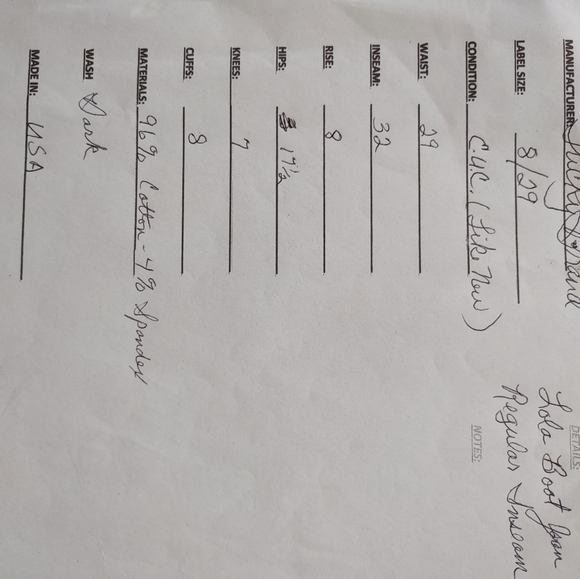 MANUFACTURER: Lucky Brand
LABEL SIZE: 8/29
CONDITION: E.U.C. (Like New)
WAIST: 29
INSEAM: 32
RISE: 8
HIPS: 17 1/2
KNEES: 7
CUFFS: 8
MATERIALS: 96% Cotton - 4% Spandex
WASH Dark
MADE IN: USA
DETAILS:
Lola Boot Jean
Regular Inseam
NOTES: